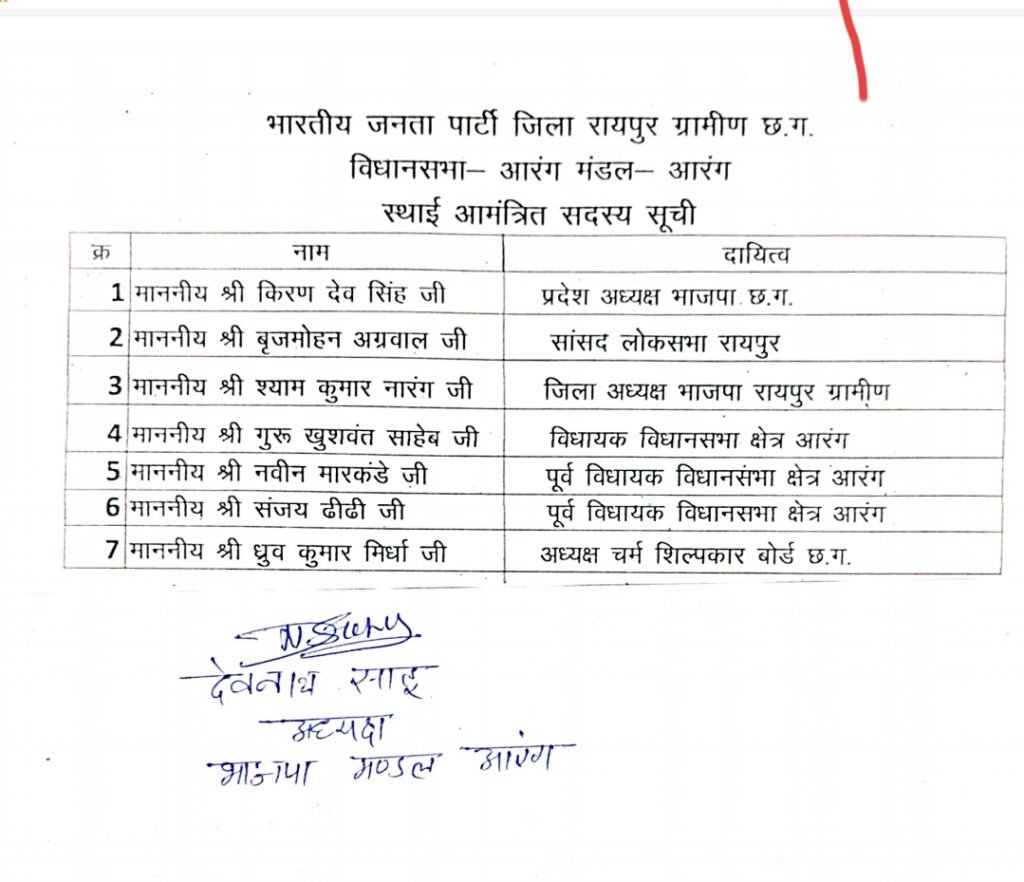 भारतीय जनता पार्टी जिला रायपुर ग्रामीण छ.ग.
विधानसभा– आरंग मंडल– आरंग
स्थाई आमंत्रित सदस्य सूची
क्र नाम दायित्व
1 माननीय श्री किरण देव सिंह जी प्रदेश अध्यक्ष भाजपा छ.ग.
2 माननीय श्री बृजमोहन अग्रवाल जी सांसद लोकसभा रायपुर
3 माननीय श्री श्याम कुमार नारंग जी जिला अध्यक्ष भाजपा रायपुर ग्रामीण
4 माननीय श्री गुरू खुशवंत साहेब जी विधायक विधानसभा क्षेत्र आरंग
5 माननीय श्री नवीन मारकंडे जी पूर्व विधायक विधानसभा क्षेत्र आरंग
6 माननीय श्री संजय ढीढी जी पूर्व विधायक विधानसभा क्षेत्र आरंग
7 माननीय श्री ध्रुव कुमार मिर्धा जी अध्यक्ष चर्म शिल्पकार बोर्ड छ.ग.
देवनाथ साहू
अध्यक्ष
भाजपा मण्डल आरंग